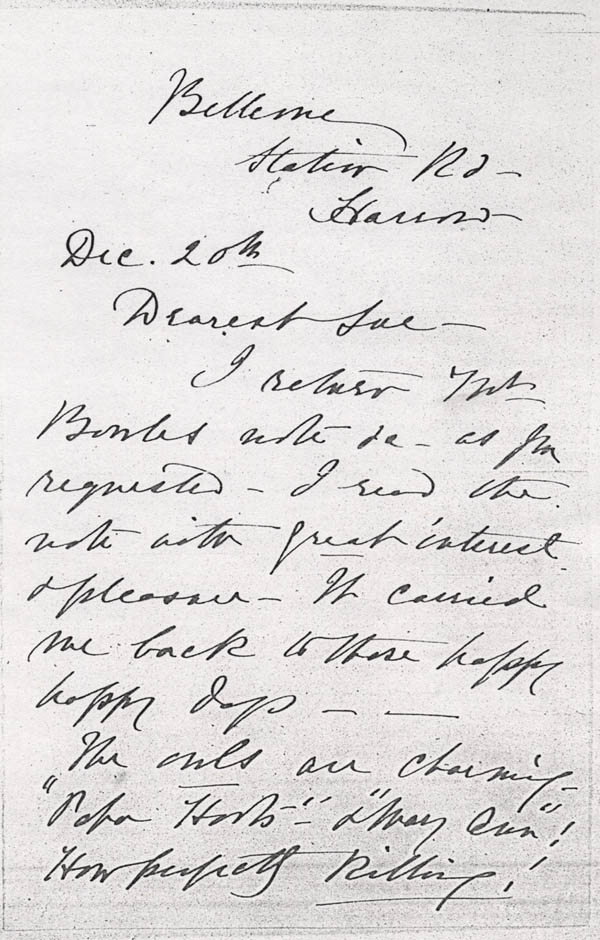 Bellevue
Station Rd –
Harrow –
Dec. 20th
Dearest Sue –
I return Mr
Bowles note &c – as you
requested – I read the
note with great interest
& pleasure – It carried
me back to those happy
happy days – –
The owls are charming –
"Papa Hoots" – & "Mary Ann"!
How perfectly killing!!